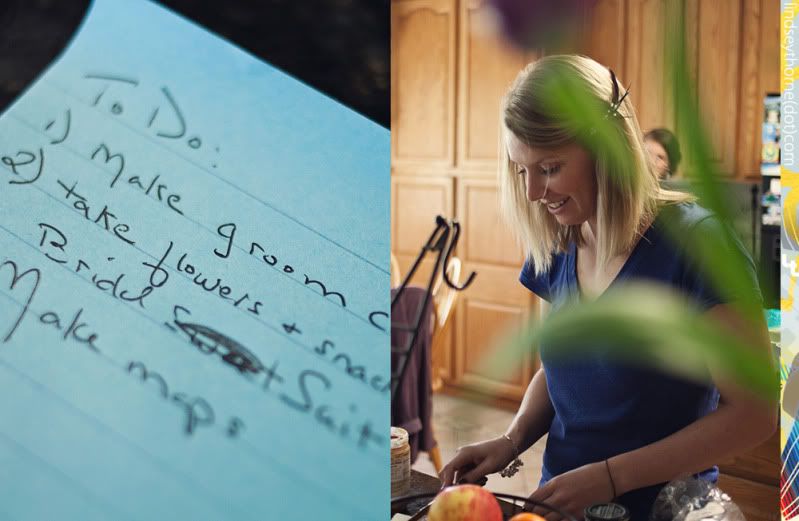 To Do:
1) Make groom c
2) take flowers + snac
Bridal Suit
Make maps
lindseythorne(dot)com